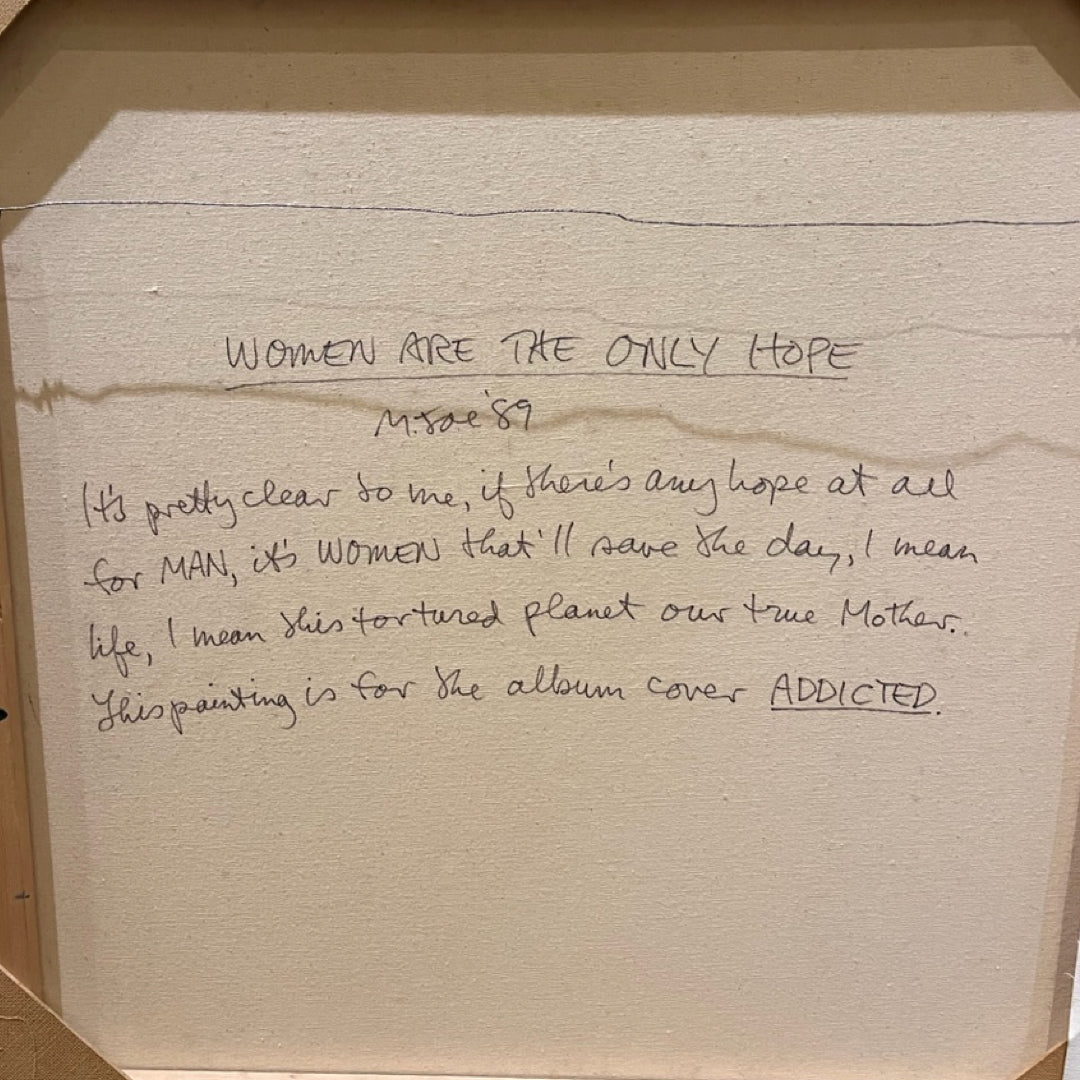 WOMEN ARE THE ONLY HOPE
M. Joe '89
It's pretty clear to me, if there's any hope at all
for MAN, it's WOMEN that'll save the day, I mean
life, I mean this tortured planet our true Mother..
This painting is for the album cover ADDICTED.